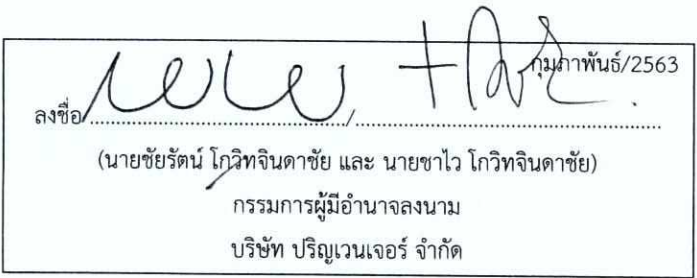 กุมภาพันธ์/2563
ลงชื่อ............................................./.......................................................
(นายชัยรัตน์ โกวิทจินดาชัย และ นายชาไว โกวิทจินดาชัย)
กรรมการผู้มีอำนาจลงนาม
บริษัท ปริญเวนเจอร์ จำกัด